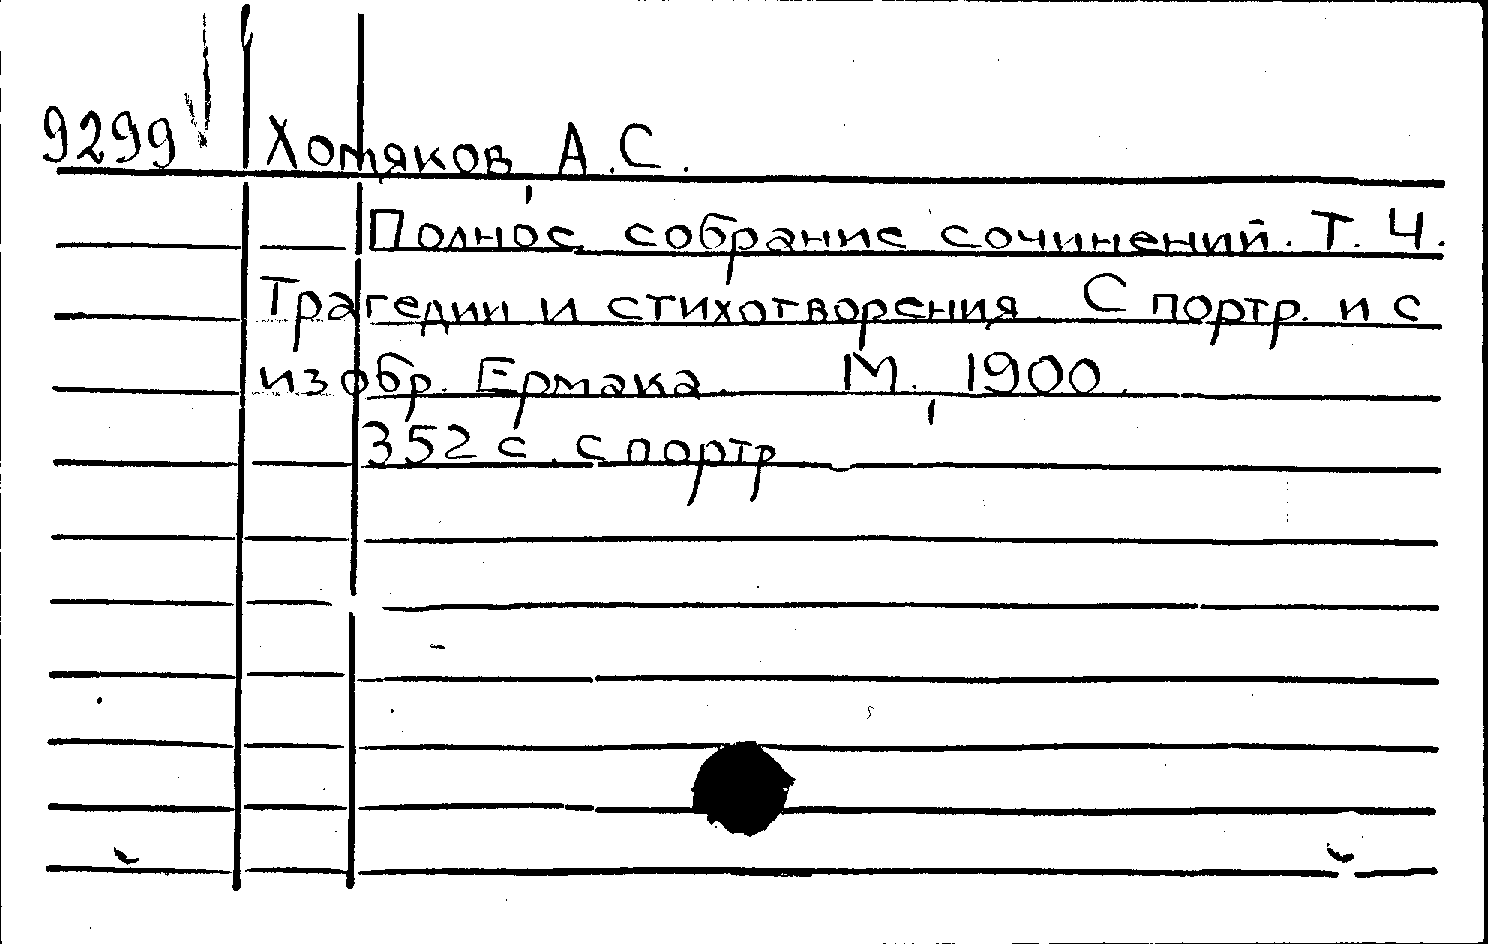 9299 Хомяков, А.С.
Полное собрание сочинений. Т. 4.
Трагедии и стихотворения. С портр. и с
изобр. Ермака. М., 1900.
352 с. с портр